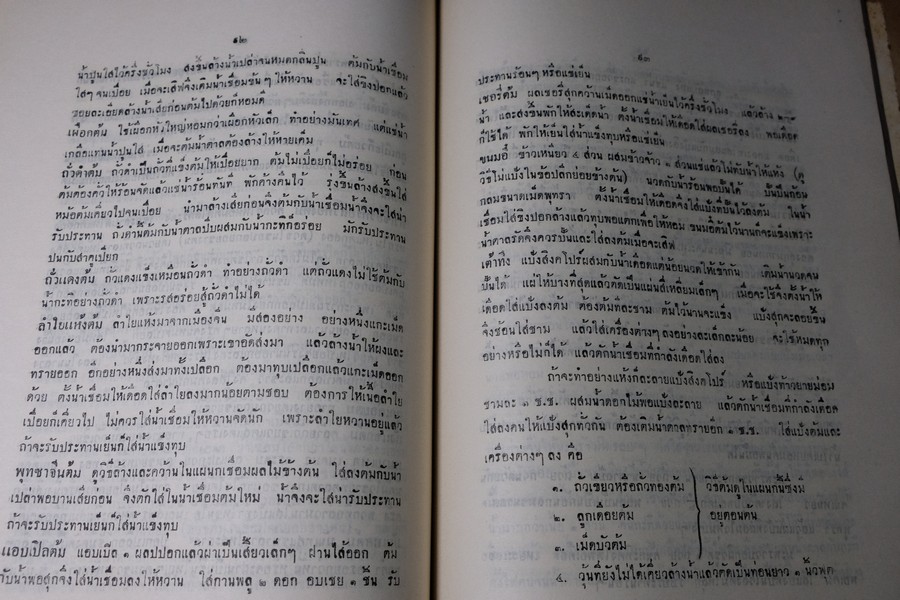 ๑๒
น้ำปูนใสไว้ครึ่งชั่วโมง สงขึ้นล้างน้ำเปล่าจนหมดกลิ่นปูน ต้มกับน้ำเชื่อม
ใสๆ จนเปื่อย เมื่อจะเสิฟจึงเติมน้ำเชื่อมข้นๆ ให้หวาน จะใส่ขิงปอกแล้ว
ซอยละเอียดล้างน้ำเสียก่อนต้มไปด้วยก็หอมดี
เผือกต้ม ใช้เผือกหัวใหญ่หอมกว่าเผือกหัวเล็ก ทำอย่างมันเทศ แต่แช่น้ำ
เกลือแทนน้ำปูนใส เมื่อจะต้มน้ำตาลต้องล้างให้หายเค็ม
ถั่วดำต้ม ถั่วดำเป็นถั่วที่แข็งต้มให้เปื่อยยาก ต้มไม่เปื่อยก็ไม่อร่อย ก่อน
ต้มต้องคั่วให้ร้อนจัดแล้วแช่น้ำร้อนทันที พักค้างคืนไว้ รุ่งขึ้นล้างสงขึ้นใส่
หม้อต้มเคี่ยวไปจนเปื่อย นำมาล้างเสียก่อนจึงต้มกับน้ำเชื่อมน้ำจึงจะใสน่า
รับประทาน ถั่วดำนี้ต้มกับน้ำตาลปึบผสมกับน้ำกะทิก็อร่อย มักรับประทาน
ปนกับสาคูเปียก
ถั่วแดงต้ม ถั่วแดงแข็งเหมือนถั่วดำ ทำอย่างถั่วดำ แต่ถั่วแดงไม่ใช้ต้มกับ
น้ำกะทิอย่างถั่วดำ เพราะรสอร่อยสู้ถั่วดำไม่ได้
ลำไยแห้งต้ม ลำไยแห้งมาจากเมืองจีน มีสองอย่าง อย่างหนึ่งแกะเม็ด
ออกแล้ว ต้องนำมากระจายออกเพราะเขาอัดส่งมา แล้วล้างน้ำให้ผงและ
ทรายออก อีกอย่างหนึ่งส่งมาทั้งเปลือก ต้องมาทุบเปลือกแล้วแกะเม็ดออก
ด้วย ตั้งน้ำเชื่อมให้เดือดใส่ลำไยลงมากน้อยตามชอบ ต้องการให้เนื้อลำไย
เปื่อยก็เคี่ยวไป ไม่ควรใส่น้ำเชื่อมให้หวานจัดนัก เพราะลำไยหวานอยู่แล้ว
ถ้าจะรับประทานเย็นก็ใส่น้ำแข็งทุบ
พุทซาจีนต้ม ดูวิธีล้างและคว้านในแผนกเชื่อมผลไม้ข้างต้น ใส่ลงต้มกับน้ำ
เปล่าพอบานเสียก่อน จึงตักใส่ในน้ำเชื่อมต้มใหม่ น้ำจึงจะใสน่ารับประทาน
ถ้าจะรับประทานเย็นก็ใส่น้ำแข็งทุบ
แอบเปิลต้ม แอบเปิล ๑ ผลปปอกแล้วผ่าเป็นเสี้ยวเล็กๆ ผ่านไส้ออก ต้ม
กับน้ำพอสุกจึงใส่น้ำเชื่อมลงให้หวาน ใส่กานพลู ๒ ดอก อบเชย ๑ ชิ้น รับ
๑๓
ประทานร้อนๆ หรือแช่เย็น
เชอรี่ต้ม ผลเชอรี่สุกคว้านเม็ดออกแช่น้ำเย็นไว้ครึ่งชั่วโมง แล้วล้าง
น้ำ และสงขึ้นพักให้สะเด็ดน้ำ ตั้งน้ำเชื่อมให้เดือดใส่ผลเชอรี่ลง พอเดือด
ก็ใช้ได้ พักให้เย็นใส่น้ำแข็งทุบหรือแช่เย็น
ขนมอี๋ ข้าวเหนียว ๔ ส่วน ผสมข้าวจ้าว ๑ ส่วนแช่แล้วโม่ทับน้ำให้แห้ง (ดู
วิธีโม่แป้งในข้อปลีกย่อยข้างต้น) นวดกับน้ำร้อนพอปั้นได้ ปั้นเป็นก้อน
กลมขนาดเม็ดพุทรา ตั้งน้ำเชื่อมให้เดือดจึงใส่แป้งที่ปั้นไว้ลงต้ม ในน้ำ
เชื่อมใส่ขิงปอกล้างแล้วทุบพอแตกเพื่อให้หอม ขนมอี๋ต้มไว้นานจะแข็งเพราะ
น้ำตาลรัดจึงควรปั้นและใส่ลงต้มเมื่อจะเสิฟ
เต้าทึง แป้งสิงคโปร์ผสมกับน้ำเดือดแต่น้อยนวดให้เข้ากัน เติมน้ำนวดจน
ปั้นได้ แผ่ให้บางที่สุดแล้วตัดเป็นแผ่นสี่เหลี่ยมเล็กๆ เมื่อจะใช้จึงตั้งน้ำให้
เดือดใส่แป้งลงต้ม ต้องต้มทีละชาม ต้มไว้นานจะแข็ง แป้งสุกจะลอยขึ้น
จึงช้อนใส่ชาม แล้วใส่เครื่องต่างๆลงอย่างละเล็กละน้อย จะใช้หมดทุก
อย่างหรือไม่ก็ได้ แล้วตักน้ำเชื่อมที่กำลังเดือดใส่ลง
ถ้าจะทำอย่างแห้งก็ละลายแป้งสิงคโปร์ หรือแป้งท้าวยายม่อม
ชามละ ๑ ช.ช. ผสมน้ำดอกไม้พอแป้งละลาย แล้วตักน้ำเชื่อมที่กำลังเดือด
ใส่ลงคนให้แป้งสุกทั่วกัน ต้องเติมน้ำตาลทรายอีก ๑ ช.ช. ใส่แป้งต้มและ
เครื่องต่างๆ ลง คือ
๑. ถั่วเขียวหรือถั่วทองต้ม วิธีต้มดูในแผนกนี้ซึ่งมี
๒. ลูกเดือยต้ม อยู่ตอนต้น
๓. เม็ดบัวต้ม
๔. วุ้นที่ยังไม่ได้เคี่ยวล้างน้ำแล้วตัดเป็นท่อนยาว ๑ นิ้วฟุต